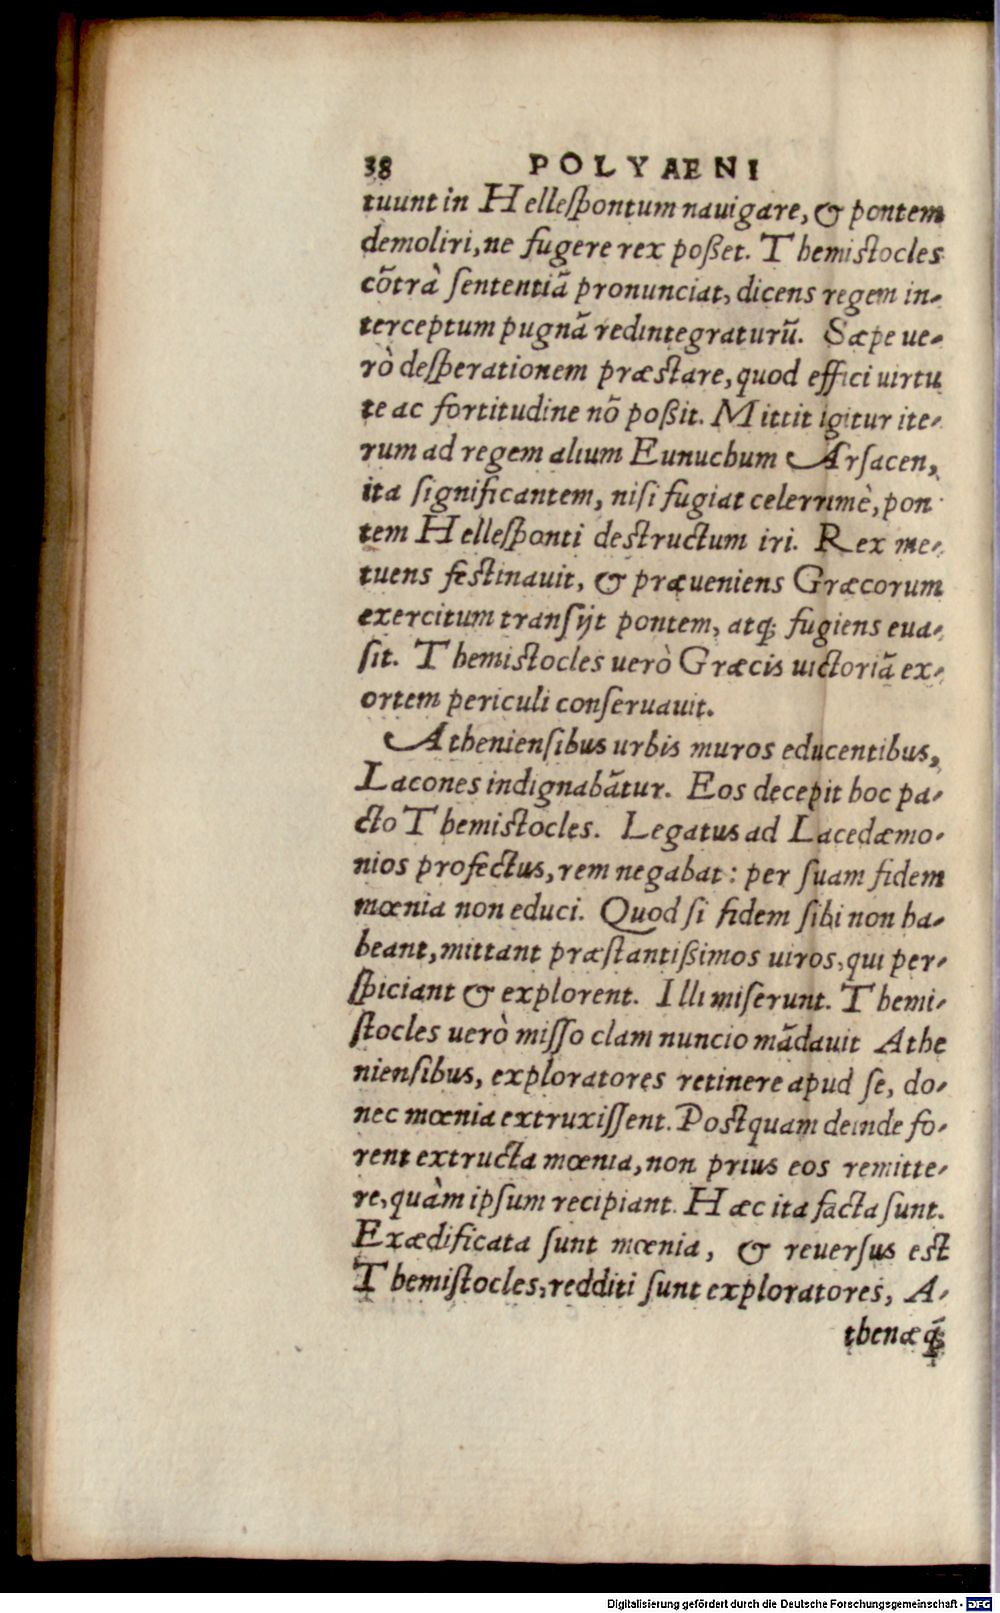 38 POLYAENI
tuunt in Hellespontum nauigare, & pontem
demoliri, ne fugere rex poßet. Themistocles
cõtrà sententiã pronunciat, dicens regem in-
terceptum pugnã redintegraturũ. Sæpe ue-
rò desperationem præstare, quod effici uirtu
te ac fortitudine nõ poßit. Mittit igitur ite-
rum ad regem alium Eunuchum Arsacen,
ita significantem, nisi fugiat celerrimè, pon
tem Hellesponti destructum iri. Rex me-
tuens festinauit, & præueniens Græcorum
exercitum transijt pontem, atq; fugiens eua-
sit. Themistocles uerò Græcis uictoriã ex-
ortem periculi conseruauit.
Atheniensibus urbis muros educentibus,
Lacones indignabãtur. Eos decepit hoc pa-
cto Themistocles. Legatus ad Lacedæmo-
nios profectus, rem negabat: per suam fidem
mœnia non educi. Quod si fidem sibi non ha-
beant, mittant præstantißimos uiros, qui per-
spiciant & explorent. Illi miserunt. Themi-
stocles uerò misso clam nuncio mãdauit Athe
niensibus, exploratores retinere apud se, do-
nec mœnia extruxissent. Postquam deinde fo-
rent extructa mœnia, non prius eos remitte-
re, quàm ipsum recipiant. Hæc ita facta sunt.
Exædificata sunt mœnia, & reuersus est
Themistocles, redditi sunt exploratores, A-
thenæq;
Digitalisierung gefördert durch die Deutsche Forschungsgemeinschaft - DFG